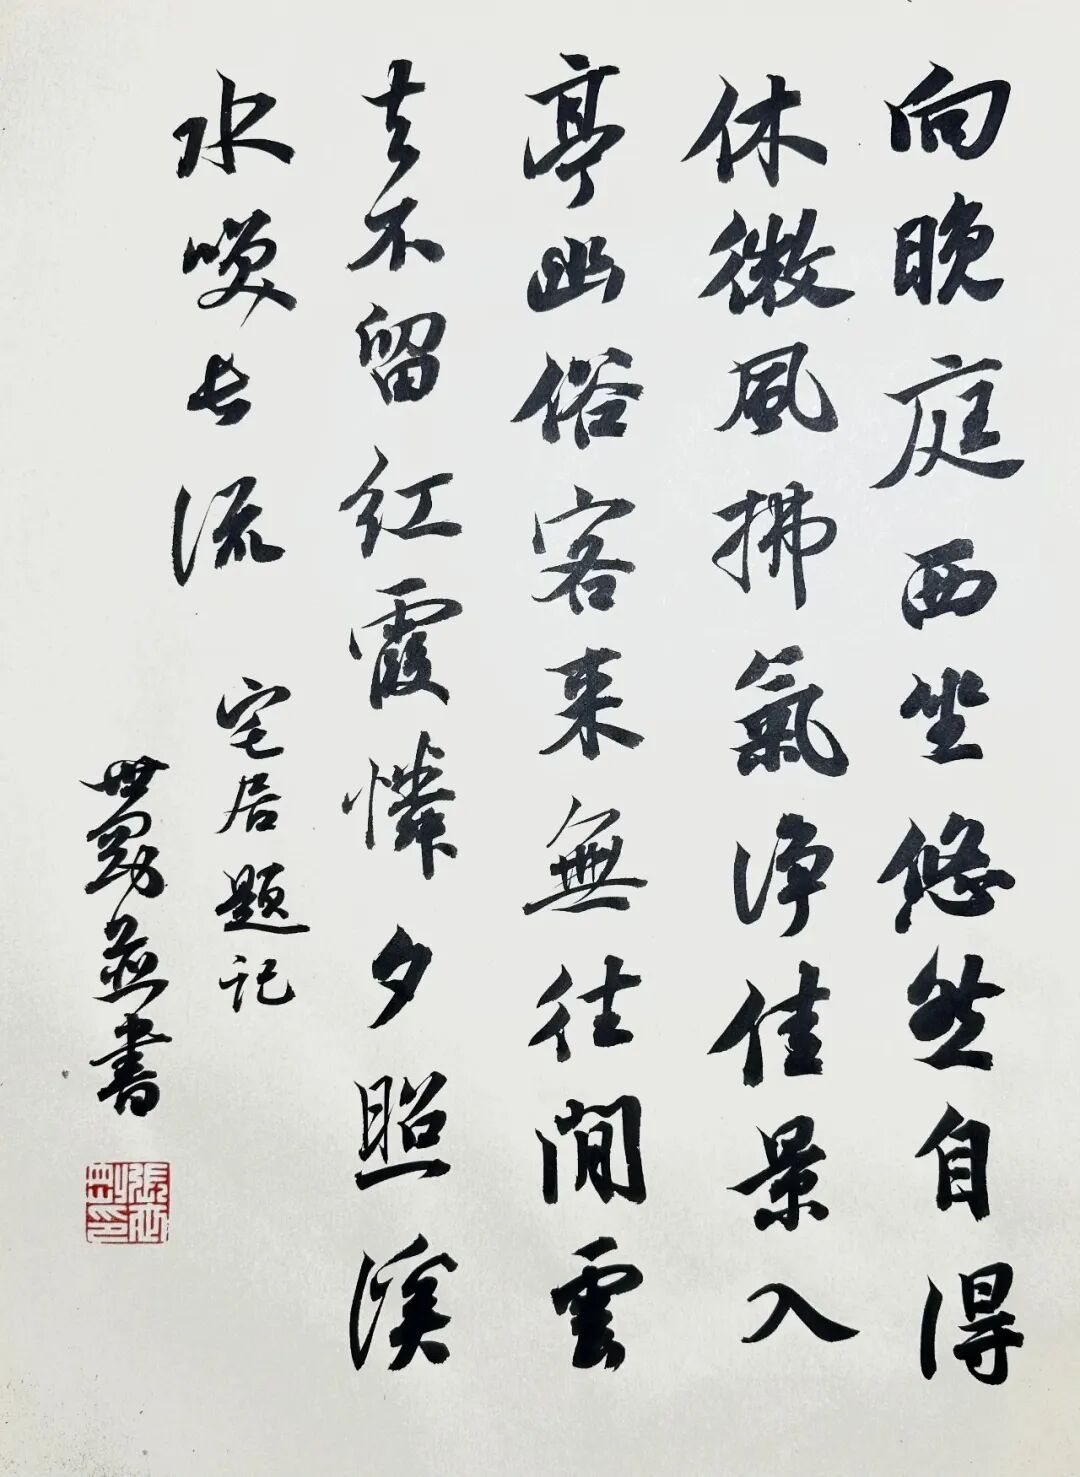 向晚庭西坐悠然自得
休微風拂氣淨佳景入
亭幽俗客来無往閒雲
去不留红霞憐夕照溪
水唤长流
宅居题记
世並書